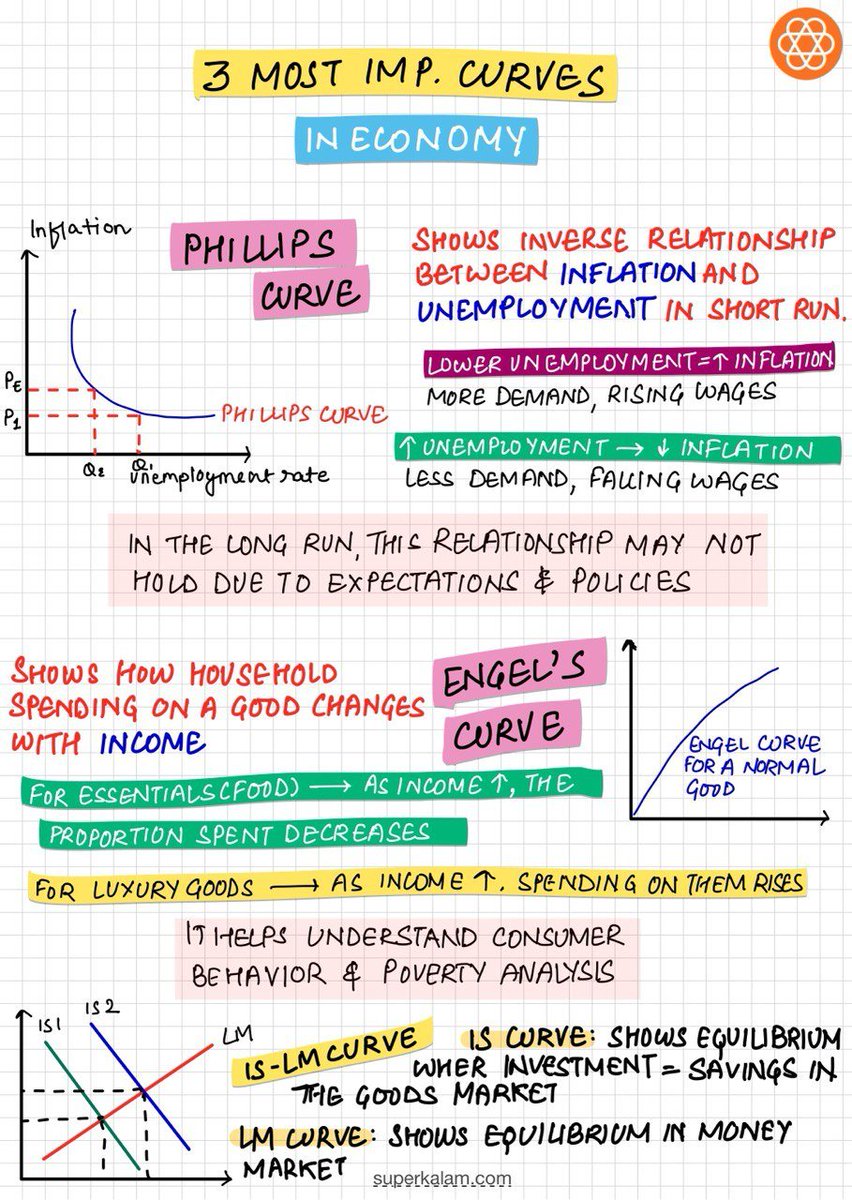 3 MOST IMP. CURVES
IN ECONOMY
Inflation
PHILLIPS
CURVE
PE
P1
PHILLIPS CURVE
Q2
Q1
Unemployment rate
SHOWS INVERSE RELATIONSHIP
BETWEEN INFLATION AND
UNEMPLOYMENT IN SHORT RUN.
LOWER UNEMPLOYMENT = ↑ INFLATION
MORE DEMAND, RISING WAGES
↑ UNEMPLOYMENT → ↓ INFLATION
LESS DEMAND, FALLING WAGES
IN THE LONG RUN, THIS RELATIONSHIP MAY NOT
HOLD DUE TO EXPECTATIONS & POLICIES
SHOWS HOW HOUSEHOLD
SPENDING ON A GOOD CHANGES
WITH INCOME
ENGEL'S
CURVE
ENGEL CURVE
FOR A NORMAL
GOOD
FOR ESSENTIALS (FOOD) → AS INCOME ↑, THE
PROPORTION SPENT DECREASES
FOR LUXURY GOODS → AS INCOME ↑. SPENDING ON THEM RISES
IT HELPS UNDERSTAND CONSUMER
BEHAVIOR & POVERTY ANALYSIS
IS1
IS2
LM
IS-LM CURVE
IS CURVE: SHOWS EQUILIBRIUM
WHER INVESTMENT = SAVINGS IN
THE GOODS MARKET
LM CURVE: SHOWS EQUILIBRIUM IN MONEY
MARKET
superkalam.com